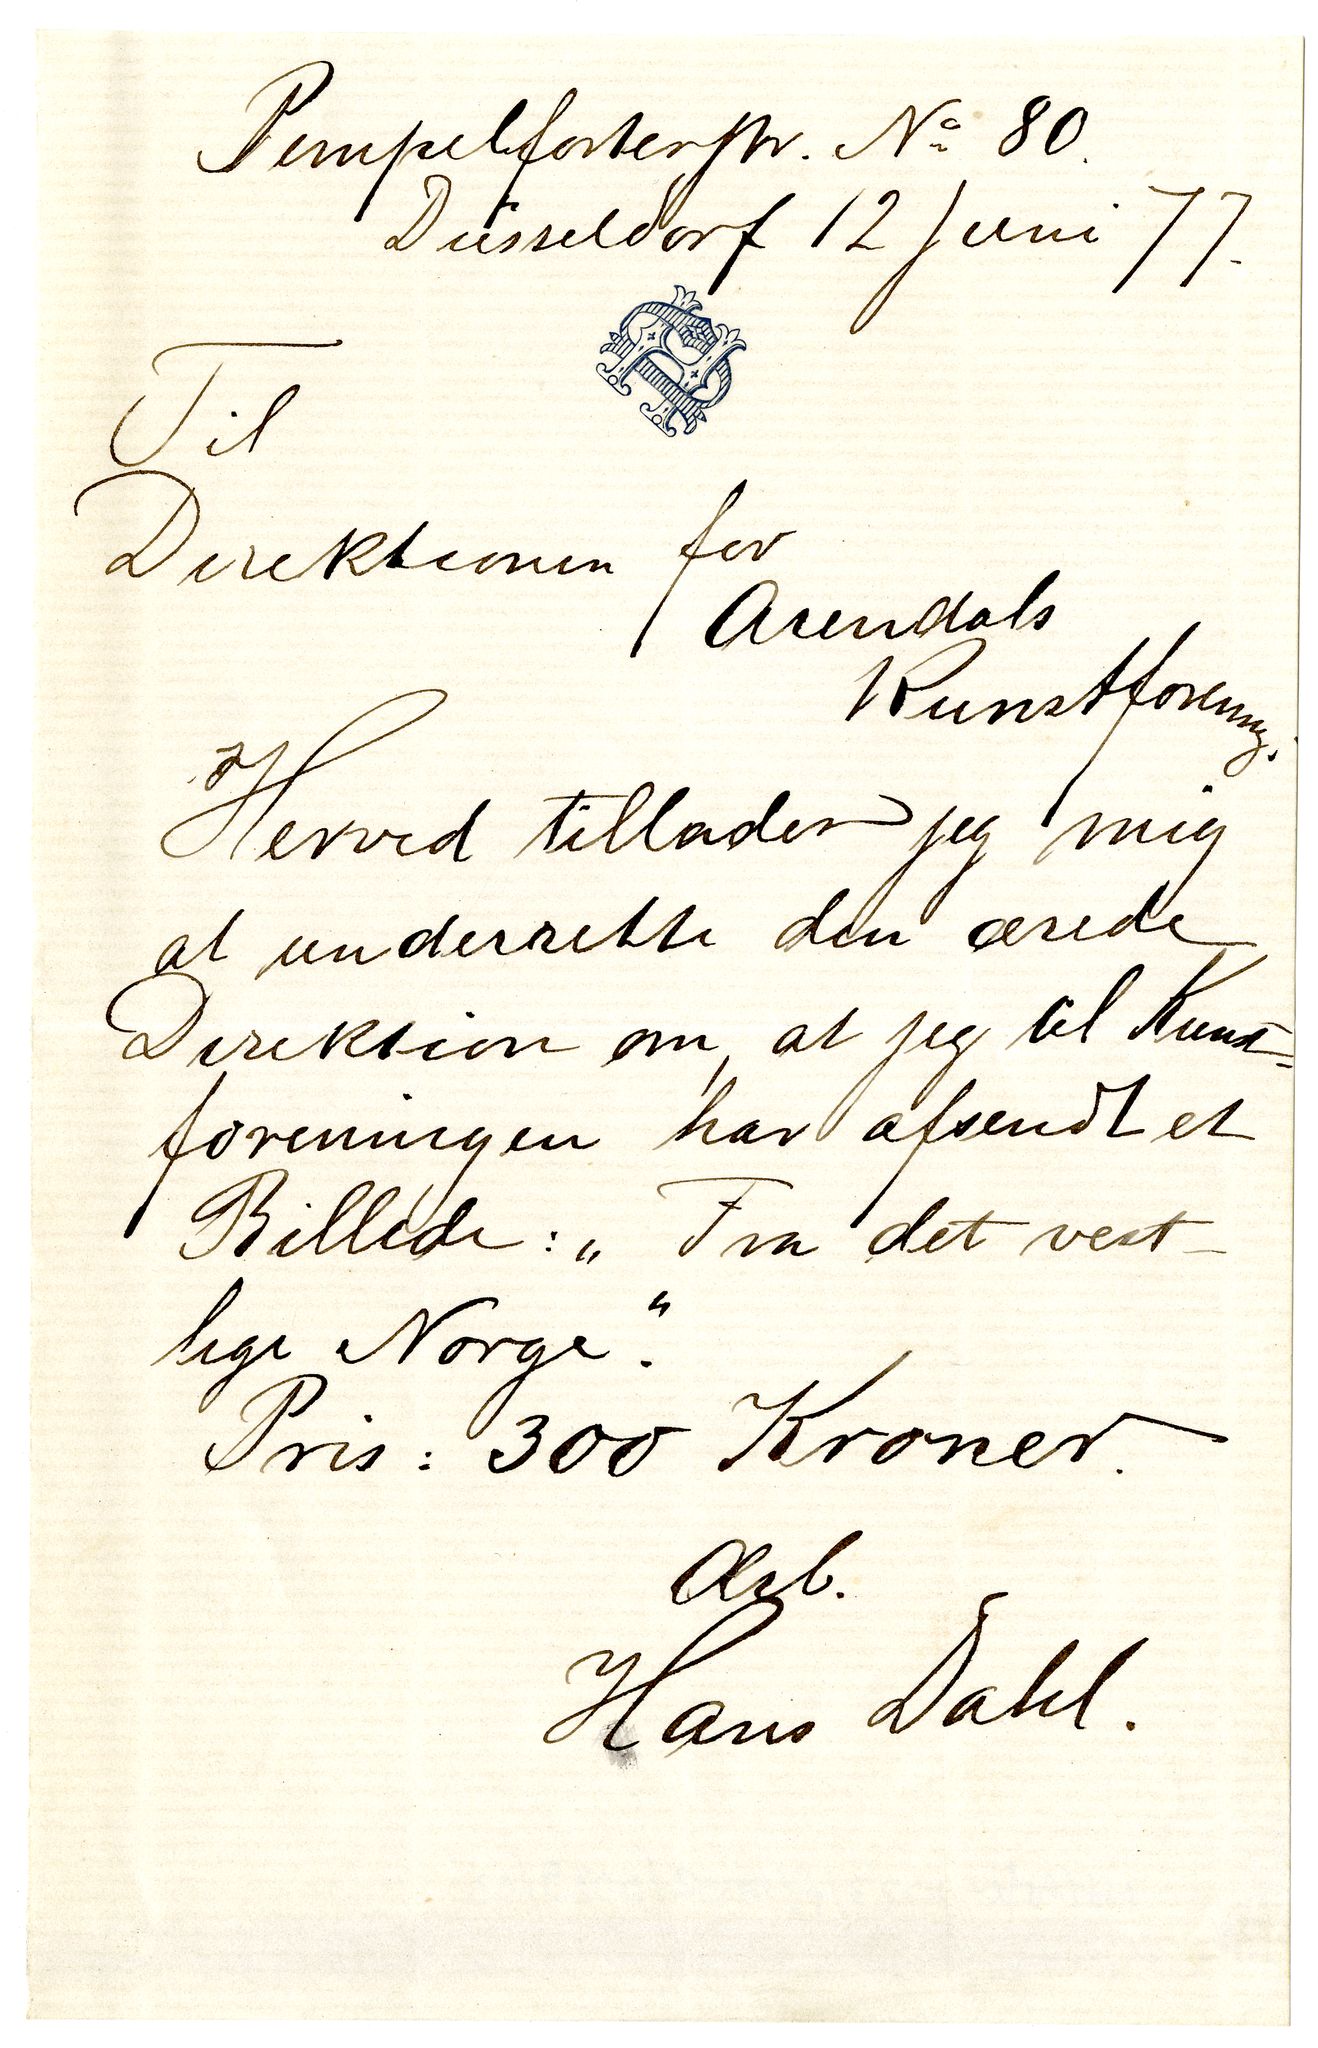 Pempelforterstr. No 80.
Düsseldorf 12 Juni 77.
Til
Direktionen for
Arendals
Kunstforening.
Herved tillader jeg mig
at underrette den ærede
Direktion om, at jeg til Kunst-
foreningen har afsendt et
Billede: „Fra det vest-
lige Norge“.
Pris: 300 Kroner.
Ærb.
Hans Dahl.